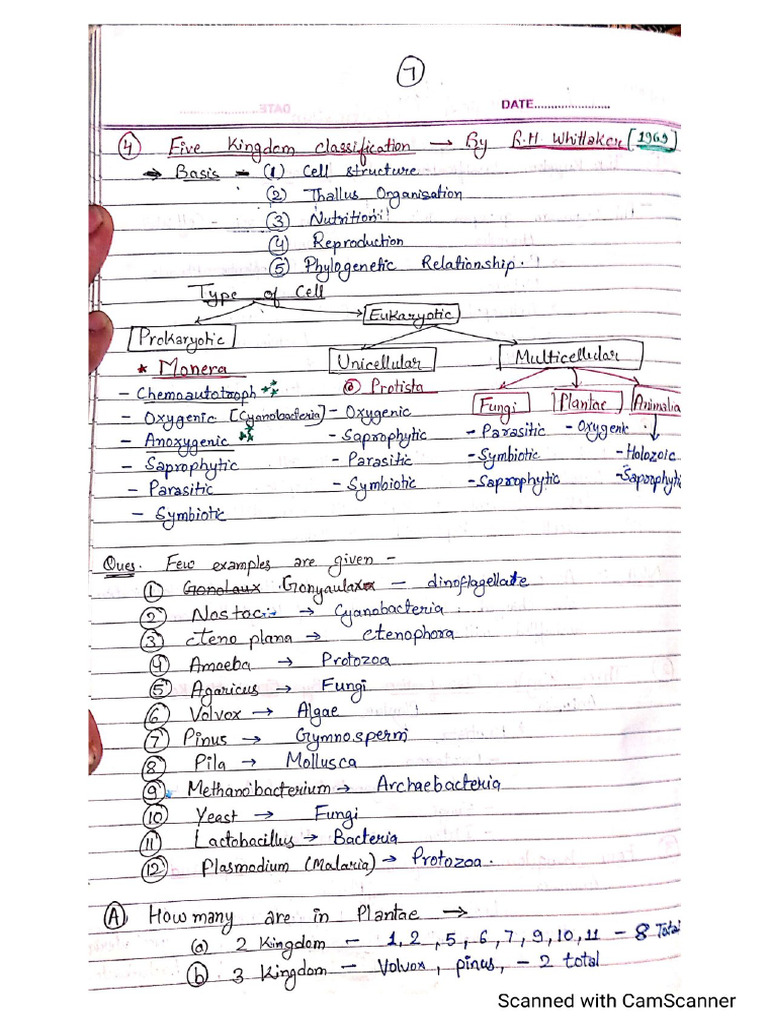 7
DATE
DATE
4 Five Kingdom classification → By R.H Whittaker [1969]
→ Basis - (1) Cell structure
(2) Thallus Organisation
(3) Nutrition
(4) Reproduction
(5) Phylogenetic Relationship.
Type of Cell
Prokaryotic Eukaryotic
Unicellular Multicellular
* Monera Protista Fungi Plantae Animalia
- Chemoautotroph - Oxygenic - Parasitic - Oxygenic - Holozoic
- Oxygenic [Cyanobacteria] - Saprophytic - Symbiotic - Saporphytic
- Anoxygenic - Parasitic - Saprophytic
- Saprophytic - Symbiotic
- Parasitic
- Symbiotic
Ques. Few examples are given -
1 Gonyaulax - dinoflagellate
2 Nostoc → Cyanobacteria
3 cteno plana → ctenophora
4 Amoeba → Protozoa
5 Agaricus → Fungi
6 Volvox → Algae
7 Pinus → Gymnosperm
8 Pila → Mollusca
9 Methanobacterium → Archaebacteria
10 Yeast → Fungi
11 Lactobacillus → Bacteria
12 Plasmodium (Malaria) → Protozoa.
A How many are in Plantae →
(a) 2 Kingdom - 1, 2, 5, 6, 7, 9, 10, 11 - 8 Total
(b) 3 Kingdom - Volvox, pinus, - 2 total
Scanned with CamScanner